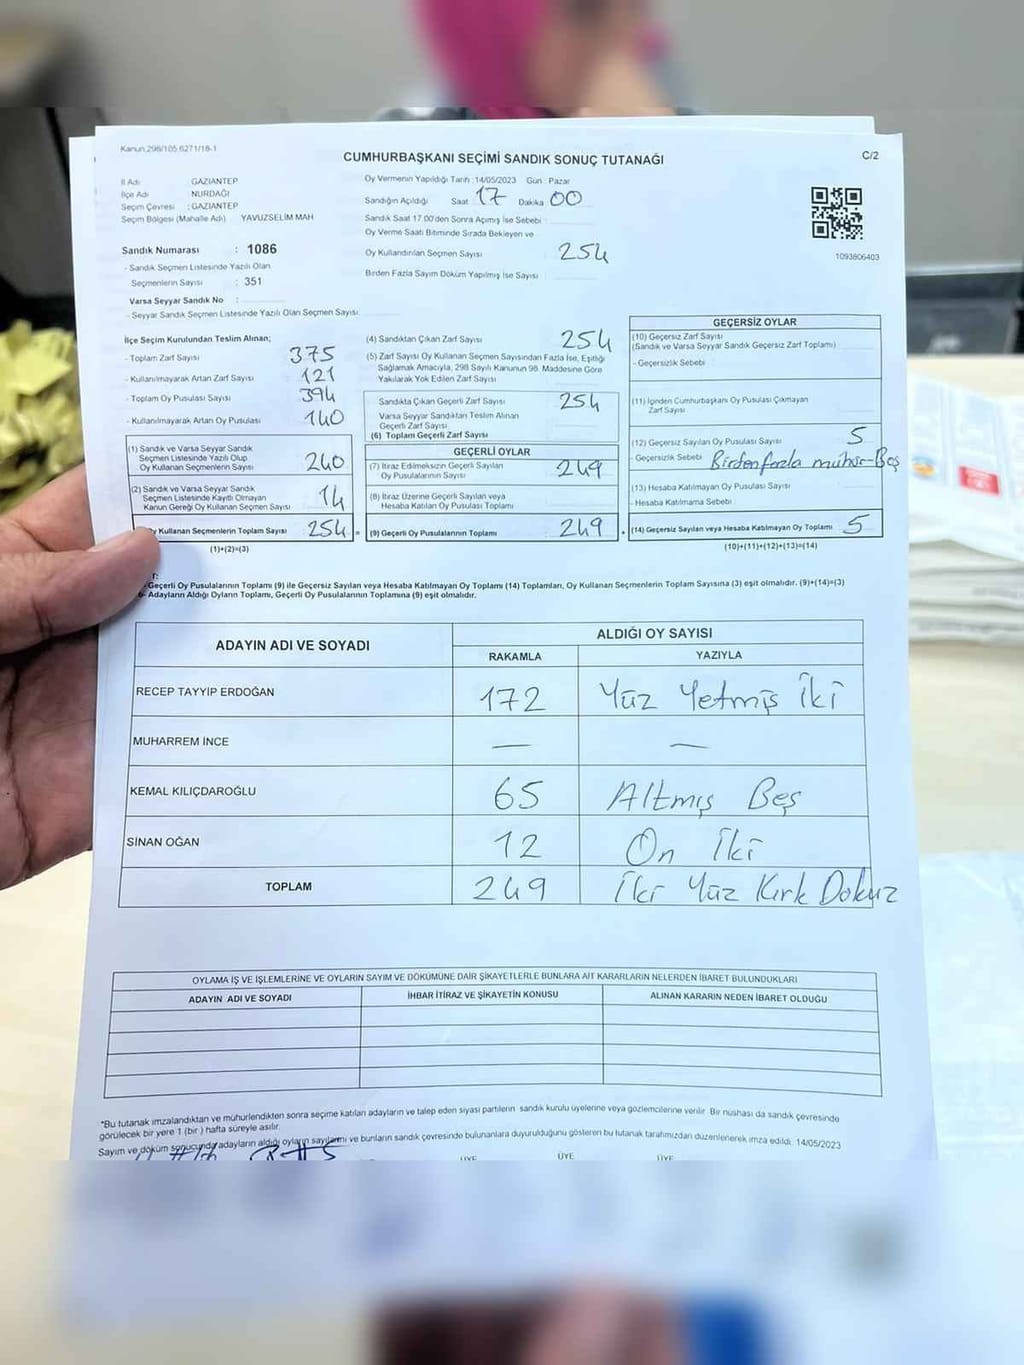 Kanun.298/105.6271/18-1
CUMHURBAŞKANI SEÇİMİ SANDIK SONUÇ TUTANAĞI
C/2
İl Adı : GAZIANTEP
İlçe Adı : NURDAĞI
Seçim Çevresi : GAZIANTEP
Seçim Bölgesi (Mahalle Adı) : YAVUZSELİM MAH
Sandık Numarası : 1086
- Sandık Seçmen Listesinde Yazılı Olan
Seçmenlerin Sayısı : 351
Varsa Seyyar Sandık No :
- Seyyar Sandık Seçmen Listesinde Yazılı Olan Seçmen Sayısı:
Oy Vermenin Yapıldığı Tarih : 14/05/2023 Gün : Pazar
Sandığın Açıldığı Saat 17 Dakika 00
Sandık Saat 17.00'den Sonra Açımış İse Sebebi :
Oy Verme Saati Bitiminde Sırada Bekleyen ve
Oy Kullandırılan Seçmen Sayısı : 254
Birden Fazla Sayım Döküm Yapılmış İse Sayısı :
1093806403
İlçe Seçim Kurulundan Teslim Alınan;
- Toplam Zarf Sayısı : 375
- Kullanılmayarak Artan Zarf Sayısı : 121
- Toplam Oy Pusulası Sayısı : 394
- Kullanılmayarak Artan Oy Pusulası : 140
(1) Sandık ve Varsa Seyyar Sandık
Seçmen Listesinde Yazılı Olup
Oy Kullanan Seçmenlerin Sayısı : 240
(2) Sandık ve Varsa Seyyar Sandık
Seçmen Listesinde Kayıtlı Olmayan
Kanun Gereği Oy Kullanan Seçmen Sayısı : 14
Oy Kullanan Seçmenlerin Toplam Sayısı : 254
(1)+(2)=(3)
(4) Sandıktan Çıkan Zarf Sayısı : 254
(5) Zarf Sayısı Oy Kullanan Seçmen Sayısından Fazla İse, Eşitliği
Sağlamak Amacıyla, 298 Sayılı Kanunun 98. Maddesine Göre
Yakılarak Yok Edilen Zarf Sayısı :
Sandıkta Çıkan Geçerli Zarf Sayısı : 254
Varsa Seyyar Sandıktan Teslim Alınan
Geçerli Zarf Sayısı
(6) Toplam Geçerli Zarf Sayısı
GEÇERLİ OYLAR
(7) İtiraz Edilmeksizin Geçerli Sayılan
Oy Pusulalarının Sayısı : 249
(8) İtiraz Üzerine Geçerli Sayılan veya
Hesaba Katılan Oy Pusulası Toplamı :
= (9) Geçerli Oy Pusulalarının Toplamı : 249
GEÇERSİZ OYLAR
(10) Geçersiz Zarf Sayısı
(Sandık ve Varsa Seyyar Sandık Geçersiz Zarf Toplamı) :
- Geçersizlik Sebebi :
(11) İçinden Cumhurbaşkanı Oy Pusulası Çıkmayan
Zarf Sayısı :
(12) Geçersiz Sayılan Oy Pusulası Sayısı : 5
- Geçersizlik Sebebi : Birdenfazla mühür-Beş
(13) Hesaba Katılmayan Oy Pusulası Sayısı :
- Hesaba Katılmama Sebebi :
+ (14) Geçersiz Sayılan veya Hesaba Katılmayan Oy Toplamı : 5
(10)+(11)+(12)+(13)=(14)
- Geçerli Oy Pusulalarının Toplamı (9) ile Geçersiz Sayılan veya Hesaba Katılmayan Oy Toplamı (14) Toplamları, Oy Kullanan Seçmenlerin Toplam Sayısına (3) eşit olmalıdır. (9)+(14)=(3)
- Adayların Aldığı Oyların Toplamı, Geçerli Oy Pusulalarının Toplamına (9) eşit olmalıdır.
ADAYIN ADI VE SOYADI
ALDIĞI OY SAYISI
RAKAMLA YAZIYLA
RECEP TAYYİP ERDOĞAN 172 Yüz Yetmiş İki
MUHARREM İNCE — —
KEMAL KILIÇDAROĞLU 65 Altmış Beş
SİNAN OĞAN 12 On İki
TOPLAM 249 İki Yüz Kırk Dokuz
OYLAMA İŞ VE İŞLEMLERİNE VE OYLARIN SAYIM VE DÖKÜMÜNE DAİR ŞİKAYETLERLE BUNLARA AİT KARARLARIN NELERDEN İBARET BULUNDUKLARI
ADAYIN ADI VE SOYADI İHBAR İTİRAZ VE ŞİKAYETİN KONUSU ALINAN KARARIN NEDEN İBARET OLDUĞU
*Bu tutanak imzalandıktan ve mühürlendikten sonra seçime katılan adayların ve talep eden siyasi partilerin sandık kurulu üyelerine veya gözlemcilerine verilir. Bir nüshası da sandık çevresinde
görülecek bir yere 1 (bir ) hafta süreyle asılır.
Sayım ve döküm sonucunda adayların aldığı oyların sayılarını ve bunların sandık çevresinde bulunanlara duyurulduğunu gösteren bu tutanak tarafımızdan düzenlenerek imza edildi. 14/05/2023
ÜYE ÜYE ÜYE